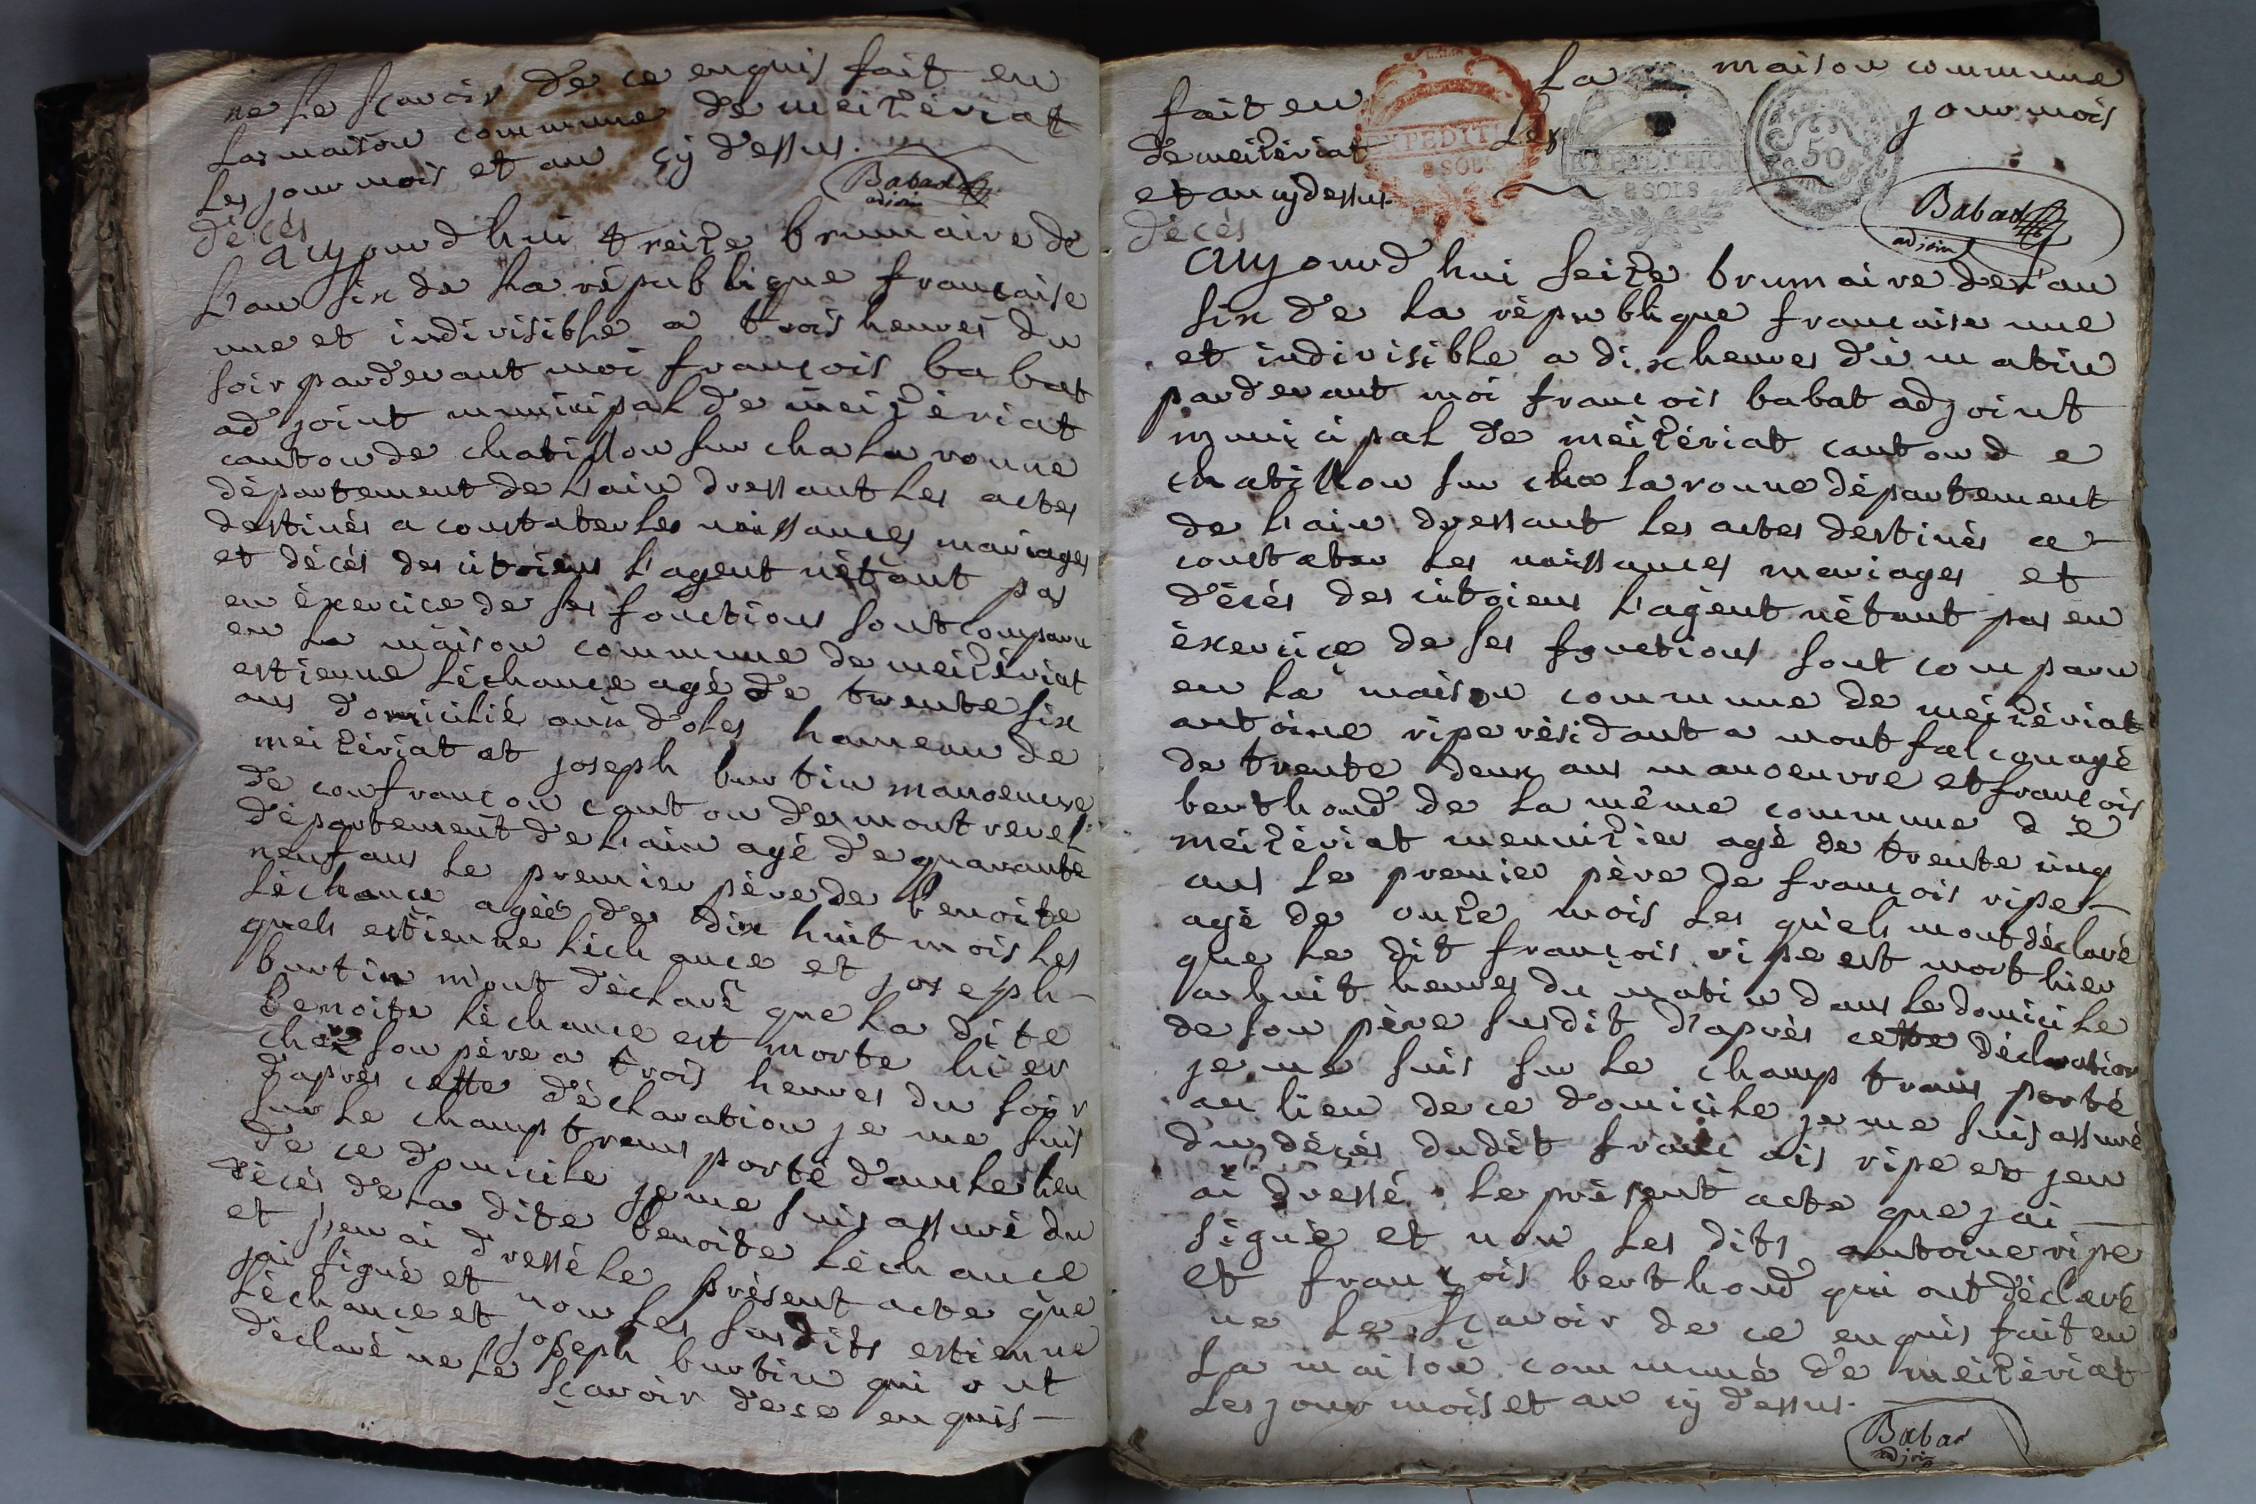 ne le sçavoir de ce enquis fait en
la maison commune de meizériat
les jour mois et an cy dessus.
Babad
adjoin
décés
aujourd'hui treize brumaire de
l'an six de la république française
une et indivisible a trois heures du
soir pardevant moi françois babat
adjoint municipal de meizériat
canton de chatillon sur chalaronne
département de l'ain dressant les actes
destinés a constater les naissances mariages
et décés des citoiens l'agent n'étant pas
en éxercice de ses fonctions sont comparu
en la maison commune de meizériat
estienne léchance agé de trente six
ans domicilié aux doles hameau de
meizériat et joseph burtin manoeuvre
de confrançon canton de montrevel
département de l'ain agé de quarante
neuf ans le premier père de benoite
léchance agée de dix huit mois les
quels estienne léchance et joseph
burtin m'ont déclaré que la dite
benoite léchance est morte hier
chez son père a trois heures du soir
d'après cette déclaration je me suis
sur le champ transporté dans le lieu
de ce domicile je me suis assuré du
décés de la dite benoite léchance
et j'en ai dressé le présent acte que
j'ai signé et non les susdits estienne
léchance et joseph burtin qui ont
déclaré ne le sçavoir de ce enquis
fait en la maison commune
de meizériat les jour mois
et an cy dessus.
EXPEDITION
8 SOLS
EXPEDITION
8 SOLS
50
Babad
adjoin
décés
aujourd'hui seize brumaire de l'an
six de la république française une
et indivisible a dix heures du matin
pardevant moi françois babat adjoint
municipal de meizériat canton de
chatillon sur chalaronne département
de l'ain dressant les actes destinés a
constater les naissances mariages et
décés des citoiens l'agent n'étant pas en
éxercice de ses fonctions sont comparu
en la maison commune de meizériat
antoine ripe résidant a montfalcon agé
de trente deux ans manoeuvre et françois
berthoud de la même commune de
meizériat menuizier agé de trente cinq
ans le premier père de françois ripe
agé de onze mois les quels m'ont déclaré
que le dit françois ripe est mort hier
a huit heures du matin dans le domicile
de son père susdit d'après cette déclaration
je me suis sur le champ transporté
au lieu de ce domicile je me suis assuré
du décés du dit françois ripe et j'en
ai dressé le présent acte que j'ai
signé et non les dits antoine ripe
et françois berthoud qui ont déclaré
ne le sçavoir de ce enquis fait en
la maison commune de meizériat
les jour mois et an cy dessus.
Babad
adjoin